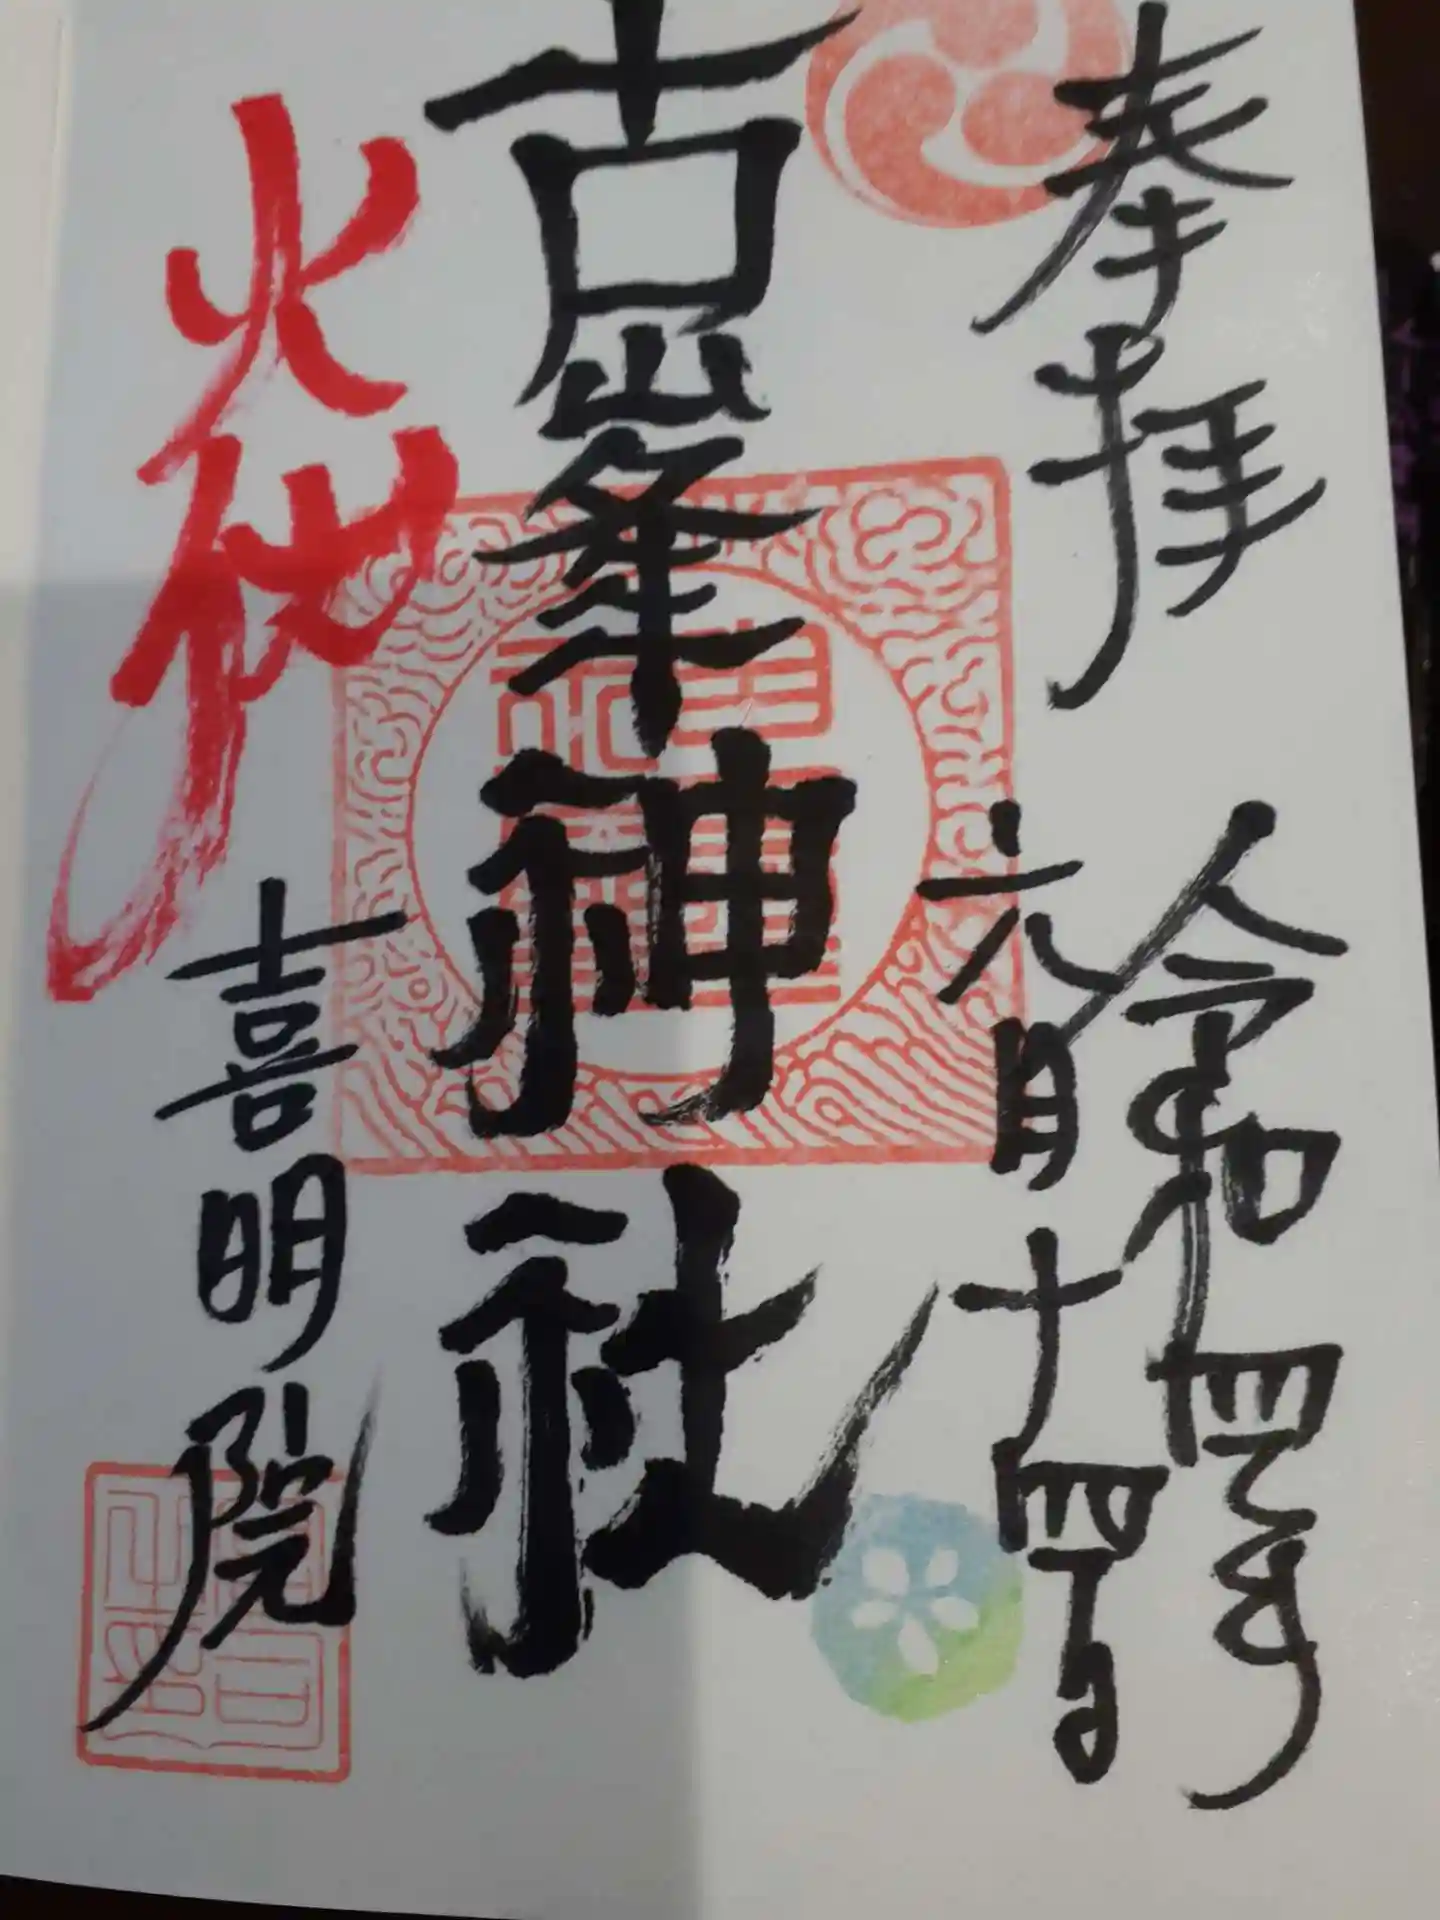 奉拝
令和四年
六月十四日
古峯神社
火伏
喜明院